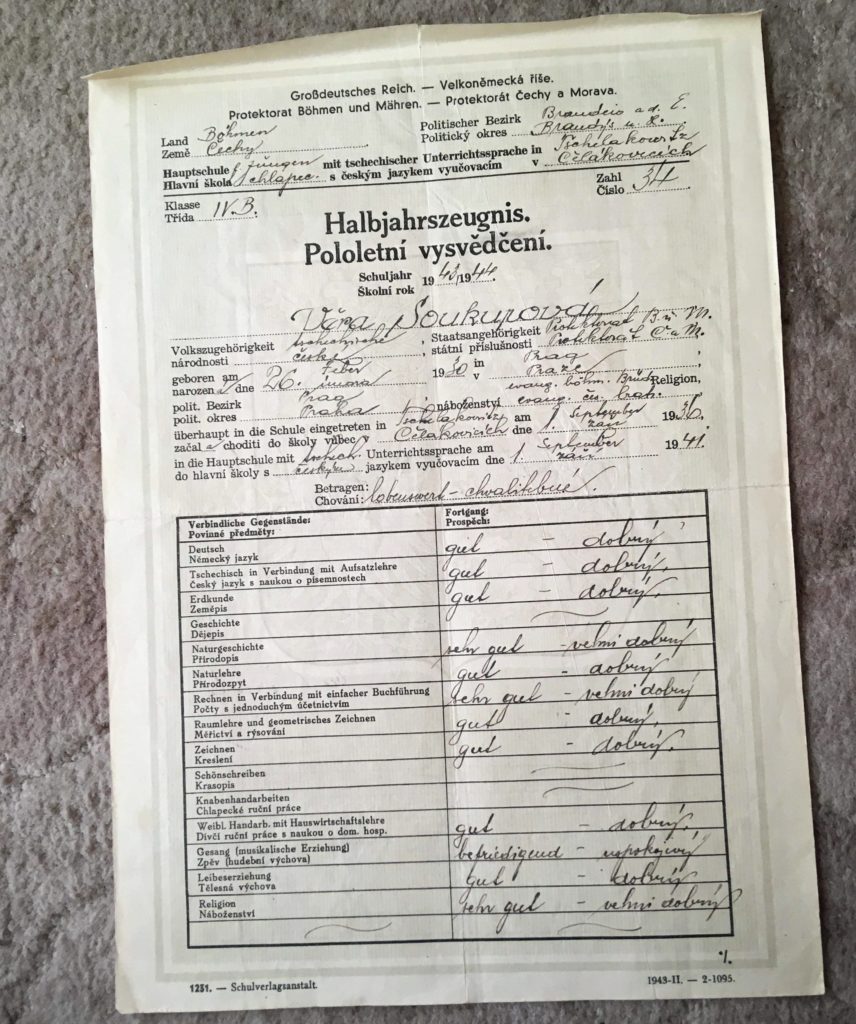 Großdeutsches Reich. — Velkoněmecká říše.
Protektorat Böhmen und Mähren. — Protektorát Čechy a Morava.
Land Böhmen Politischer Bezirk Brandeis a. d. E.
Země Čechy Politický okres Brandýs n. L.
Hauptschule f. Jungen mit tschechischer Unterrichtssprache in Tschelakowitz
Hlavní škola chlapec. s českým jazykem vyučovacím v Čelákovicích
Klasse Zahl
Třída IV.B. Číslo 34
Halbjahrszeugnis.
Pololetní vysvědčení.
Schuljahr
Školní rok 1943/1944.
Věra Soukupová
Volkszugehörigkeit tschechische, Staatsangehörigkeit Protektorat B. u. M.
národnosti české, státní příslušnosti Protektorát Č. a M.
geboren am 26. Feber 1930 in Prag,
narozena dne února v Praze,
polit. Bezirk Prag evang. böhm. Brüd. Religion,
polit. okres Praha náboženství evang. čes. brat.
überhaupt in die Schule eingetreten in Tschelakowitz am 1. September 1936.
začala choditi do školy vůbec v Čelákovicích dne 1. září
in die Hauptschule mit tschech. Unterrichtssprache am 1. September 1941.
do hlavní školy s českým jazykem vyučovacím dne 1. září
Betragen:
Chování: lobenswert – chvalitebné.
Verbindliche Gegenstände: Fortgang:
Povinné předměty: Prospěch:
Deutsch
Německý jazyk gut – dobrý
Tschechisch in Verbindung mit Aufsatzlehre
Český jazyk s naukou o písemnostech gut – dobrý.
Erdkunde
Zeměpis gut – dobrý.
Geschichte
Dějepis
Naturgeschichte
Přírodopis sehr gut – velmi dobrý
Naturlehre
Přírodozpyt gut – dobrý
Rechnen in Verbindung mit einfacher Buchführung
Počty s jednoduchým účetnictvím sehr gut – velmi dobrý
Raumlehre und geometrisches Zeichnen
Měřictví a rýsování gut – dobrý.
Zeichnen
Kreslení gut – dobrý.
Schönschreiben
Krasopis
Knabenhandarbeiten
Chlapecké ruční práce
Weibl. Handarb. mit Hauswirtschaftslehre
Dívčí ruční práce s naukou o dom. hosp. gut – dobrý.
Gesang (musikalische Erziehung)
Zpěv (hudební výchova) befriedigend – uspokojivý
Leibeserziehung
Tělesná výchova gut – dobrý
Religion
Náboženství sehr gut – velmi dobrý
./.
1251. — Schulverlagsanstalt. 1943-II. — 2-1095.